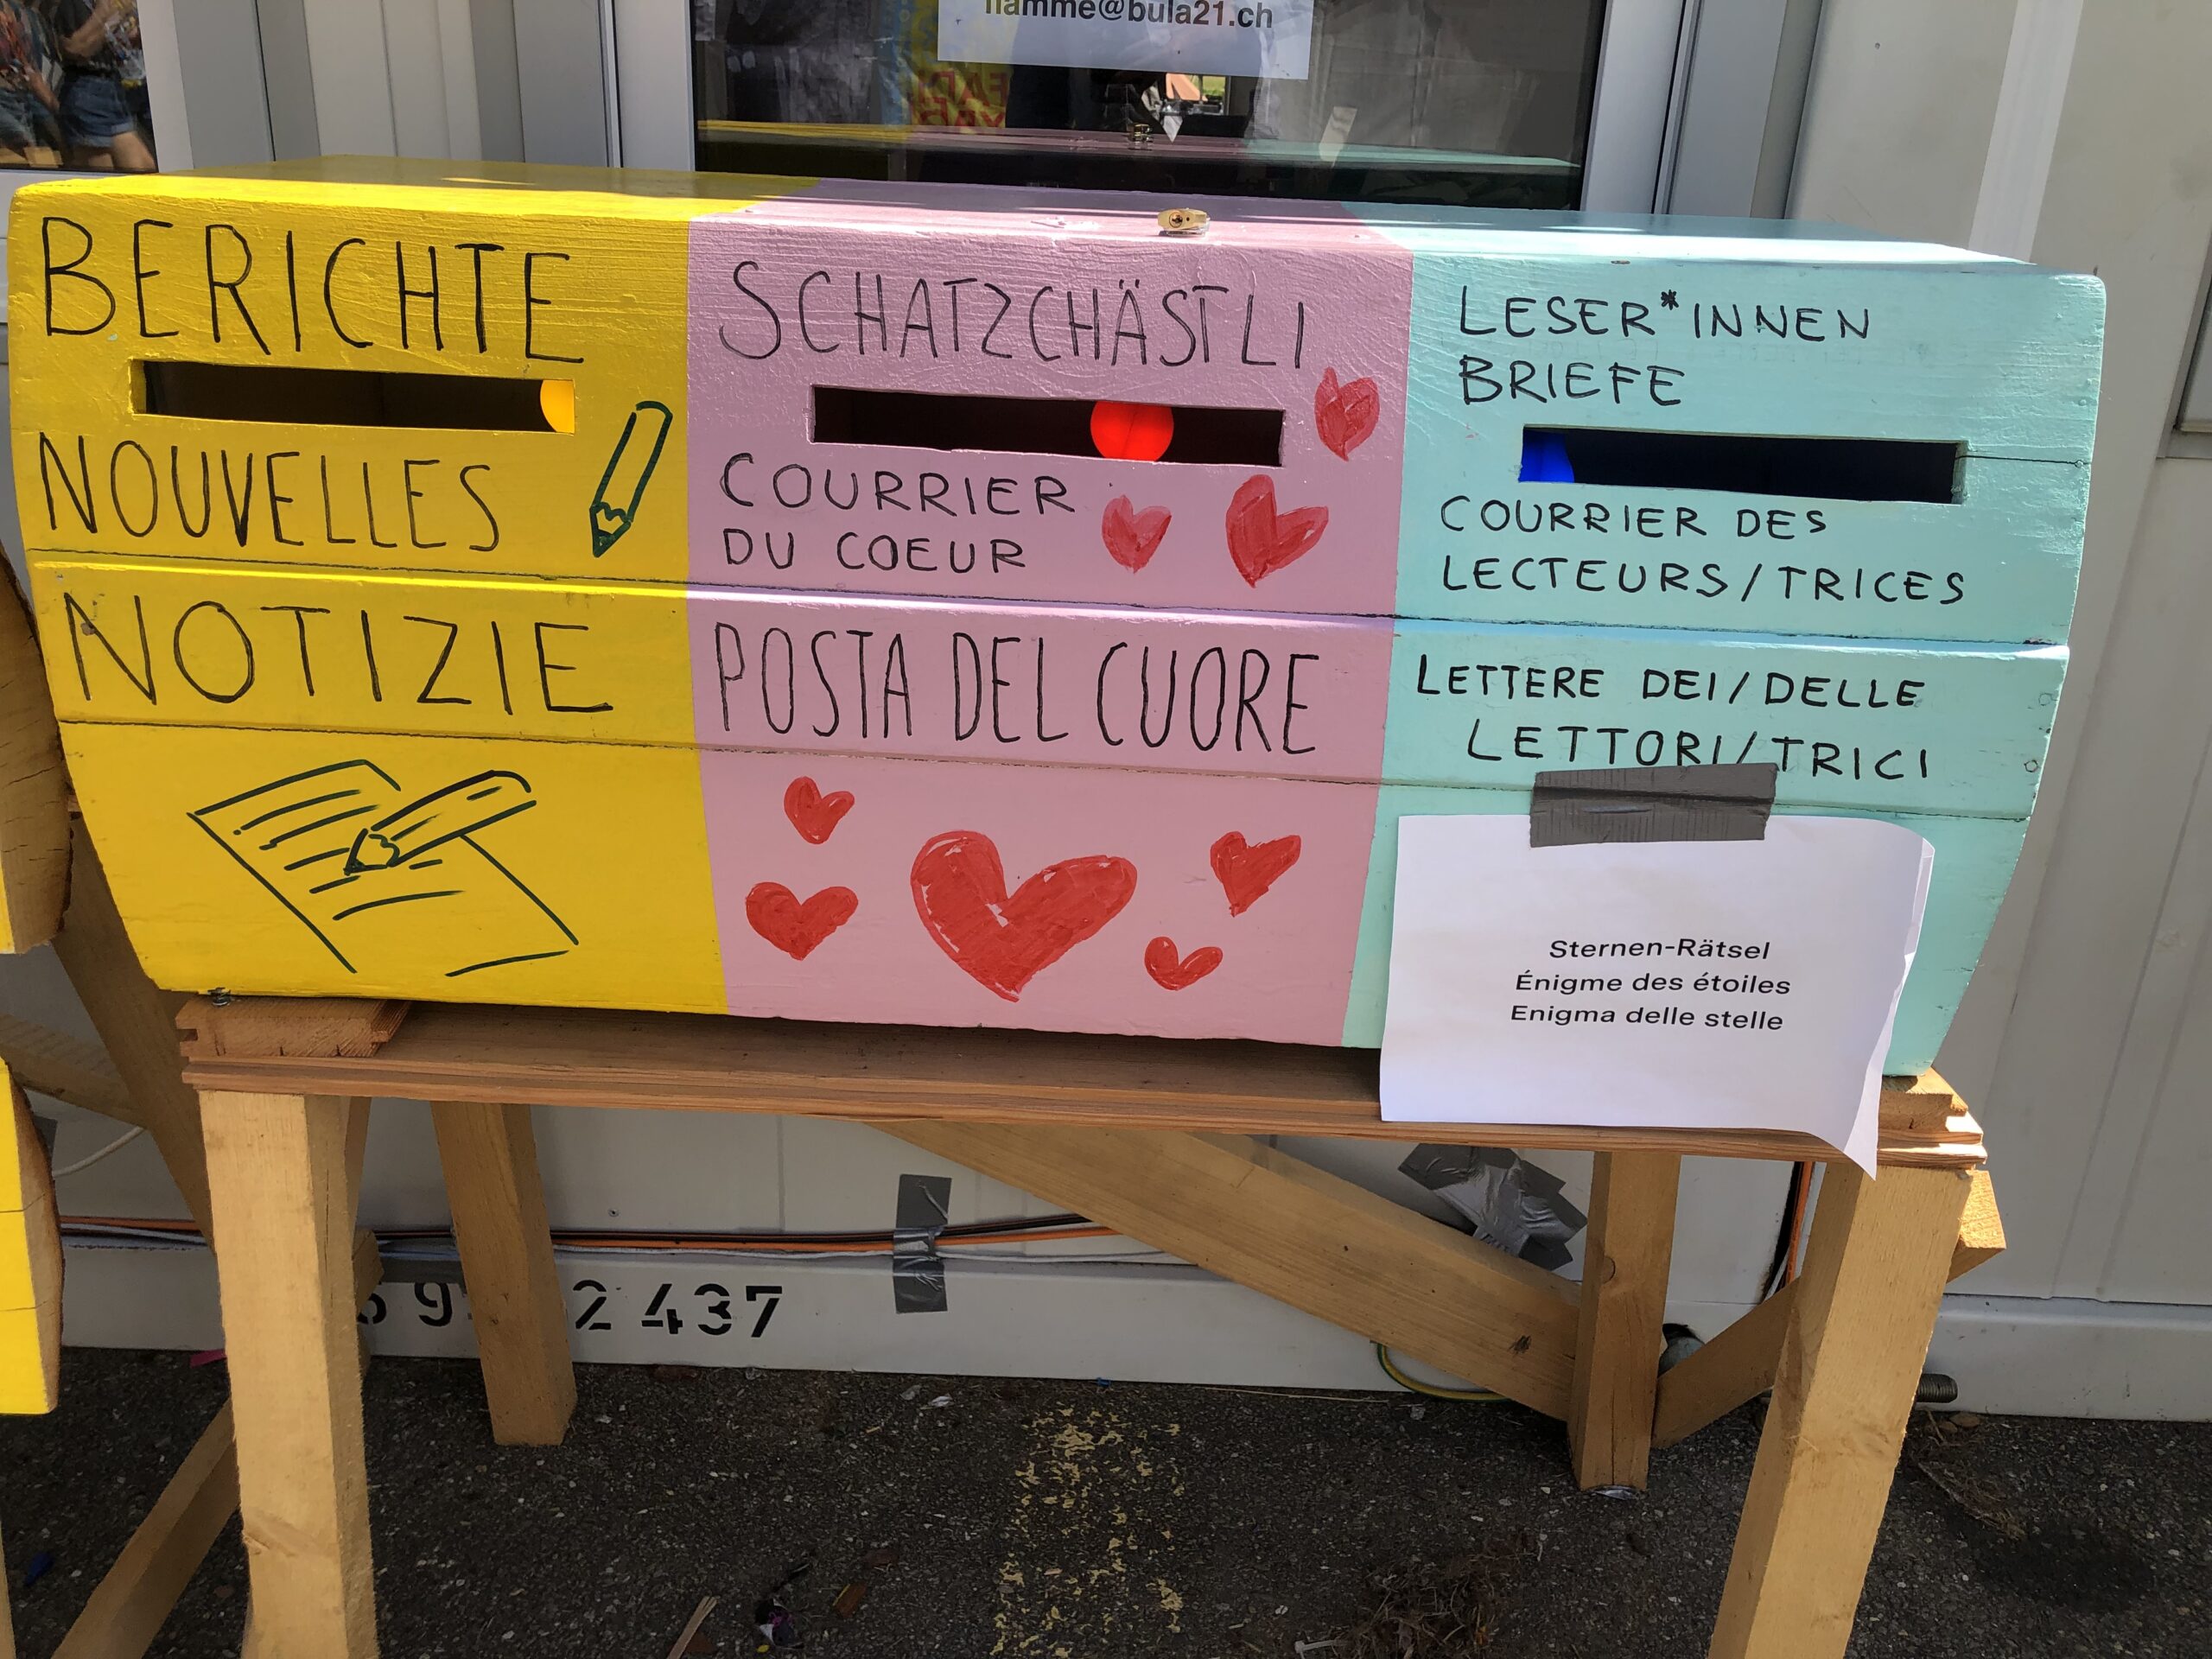 flamme@bula21.ch
BERICHTE
NOUVELLES
NOTIZIE
SCHATZCHÄSTLI
COURRIER
DU COEUR
POSTA DEL CUORE
LESER*INNEN
BRIEFE
COURRIER DES
LECTEURS/TRICES
LETTERE DEI/DELLE
LETTORI/TRICI
Sternen-Rätsel
Énigme des étoiles
Enigma delle stelle
2 437